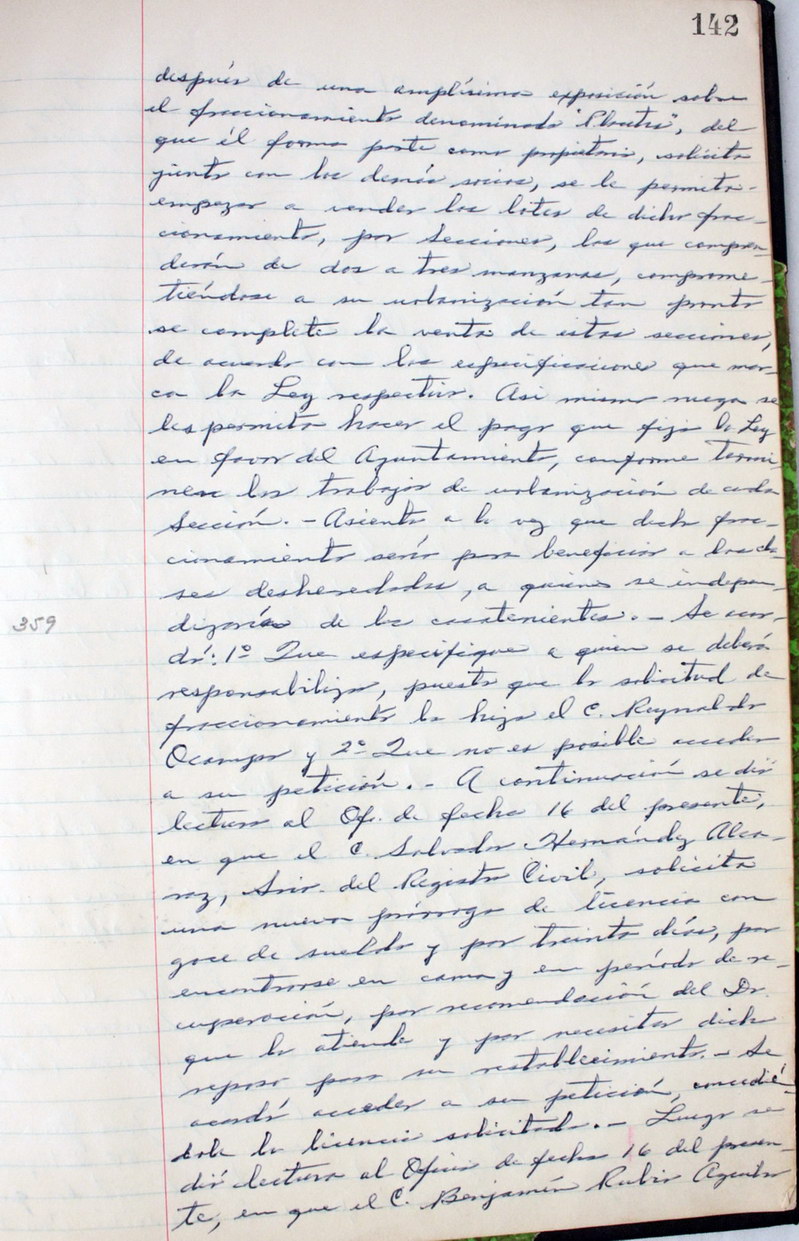 142
después de una amplísima exposición sobre
el fraccionamiento denominado
que él forma parte como propietario, solicita
junto con los demás socios, se le permita
empezar a vender los lotes de dicho frac-
cionamiento, por Secciones, las que compren-
derán de dos a tres manzanas, comprome-
tiéndose a su urbanización tan pronto
se complete la venta de estas secciones,
de acuerdo con las especificaciones que mar-
ca la Ley respectiva. Asi mismo ruega se
les permita hacer el pago que fija la Ley
en favor del Ayuntamiento, conforme termi-
nen los trabajos de urbanización de cada
Sección. - Asienta a la vez que dicho frac-
cionamiento será para beneficiar a las cla-
ses desheredadas, a quienes se indepen-
dizarías de los casatenientes. - Se acor-
359
dó: 1º Que especifique a quien se deberá
responsabilizar, puesto que la solicitud de
fraccionamiento la hizo el C. Reynaldo
Ocampo y 2º Que no es posible acceder
a su petición. - A continuación se dió
lectura al Of. de fecha 16 del presente,
en que el C. Salvador Hernández Alca-
raz, Srio. del Registro Civil, solicita
una nueva prórroga de licencia con
goce de sueldo y por treinta días, por
encontrarse en cama y en período de re-
cuperación, por recomendación del Dr.
que lo atiende y por necesitar dicho
reposo para su restablecimiento. - Se
acordó acceder a su petición, concedién-
dole la licencia solicitada. - Luego se
dió lectura al Oficio de fecha 16 del presen-
te, en que el C. Benjamín Rubio